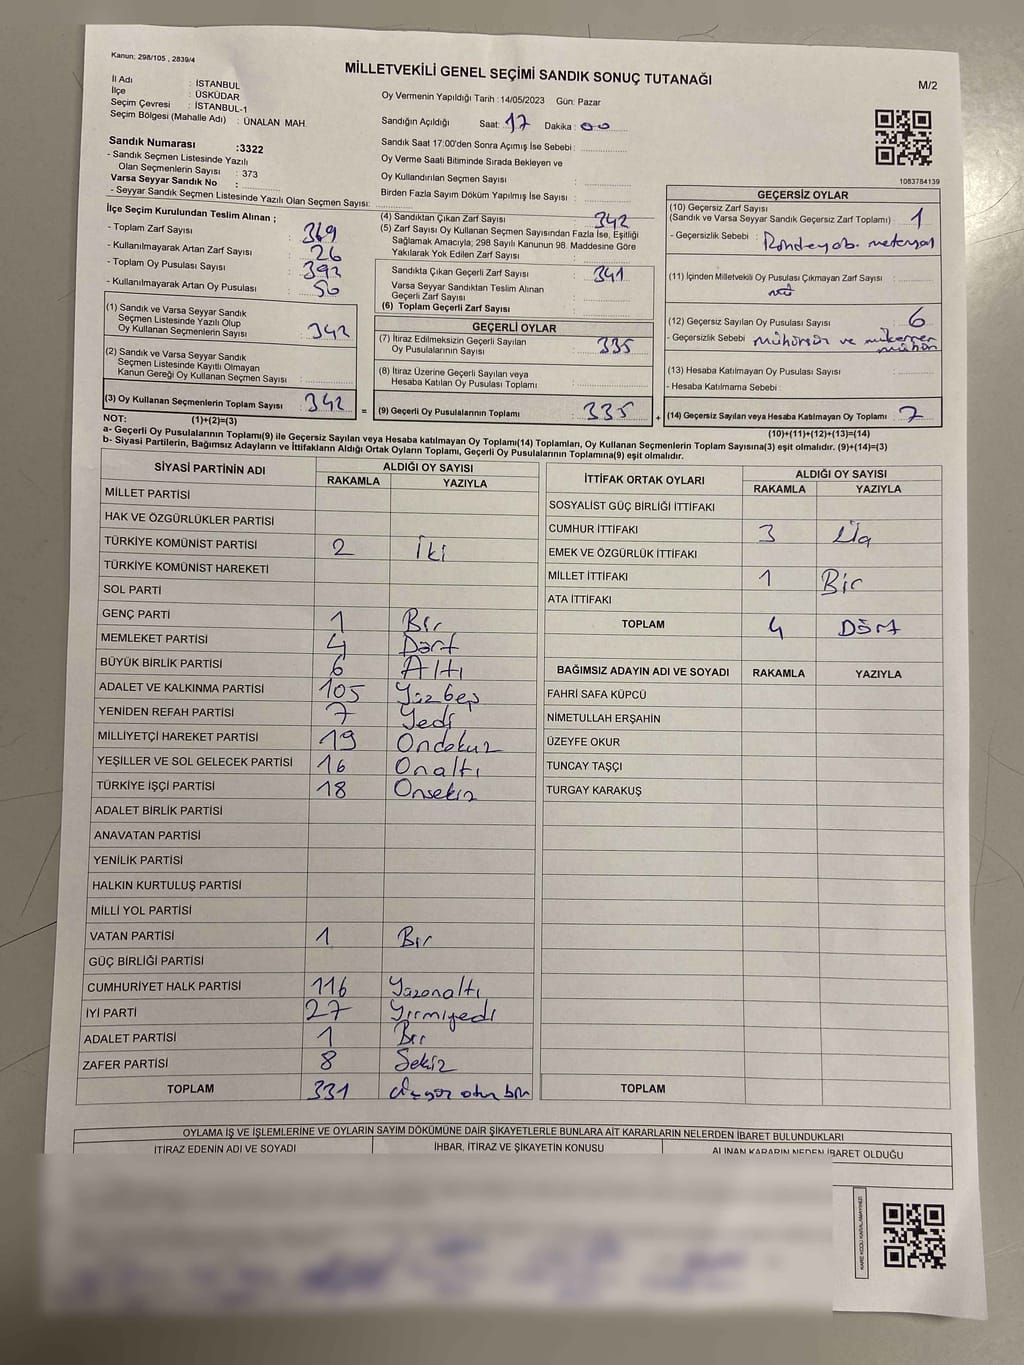 Kanun: 298/105 , 2839/4
MİLLETVEKİLİ GENEL SEÇİMİ SANDIK SONUÇ TUTANAĞI
M/2
İl Adı : İSTANBUL
İlçe : ÜSKÜDAR
Seçim Çevresi : İSTANBUL-1
Seçim Bölgesi (Mahalle Adı) : ÜNALAN MAH.
Sandık Numarası :3322
- Sandık Seçmen Listesinde Yazılı
Olan Seçmenlerin Sayısı : 373
Varsa Seyyar Sandık No :
- Seyyar Sandık Seçmen Listesinde Yazılı Olan Seçmen Sayısı:
Oy Vermenin Yapıldığı Tarih :14/05/2023 Gün: Pazar
Sandığın Açıldığı Saat: 17 Dakika : 00
Sandık Saat 17:00'den Sonra Açımış İse Sebebi :
Oy Verme Saati Bitiminde Sırada Bekleyen ve
Oy Kullandırılan Seçmen Sayısı :
Birden Fazla Sayım Döküm Yapılmış İse Sayısı :
1083784139
İlçe Seçim Kurulundan Teslim Alınan ;
- Toplam Zarf Sayısı : 369
- Kullanılmayarak Artan Zarf Sayısı : 26
- Toplam Oy Pusulası Sayısı : 392
- Kullanılmayarak Artan Oy Pusulası : 50
(1) Sandık ve Varsa Seyyar Sandık
Seçmen Listesinde Yazılı Olup
Oy Kullanan Seçmenlerin Sayısı : 342
(2) Sandık ve Varsa Seyyar Sandık
Seçmen Listesinde Kayıtlı Olmayan
Kanun Gereği Oy Kullanan Seçmen Sayısı :
(3) Oy Kullanan Seçmenlerin Toplam Sayısı : 342 =
(1)+(2)=(3)
(4) Sandıktan Çıkan Zarf Sayısı : 342
(5) Zarf Sayısı Oy Kullanan Seçmen Sayısından Fazla İse, Eşitliği
Sağlamak Amacıyla; 298 Sayılı Kanunun 98. Maddesine Göre
Yakılarak Yok Edilen Zarf Sayısı :
Sandıkta Çıkan Geçerli Zarf Sayısı : 341
Varsa Seyyar Sandıktan Teslim Alınan
Geçerli Zarf Sayısı :
(6) Toplam Geçerli Zarf Sayısı :
GEÇERLİ OYLAR
(7) İtiraz Edilmeksizin Geçerli Sayılan
Oy Pusulalarının Sayısı : 335
(8) İtiraz Üzerine Geçerli Sayılan veya
Hesaba Katılan Oy Pusulası Toplamı :
(9) Geçerli Oy Pusulalarının Toplamı : 335 +
GEÇERSİZ OYLAR
(10) Geçersiz Zarf Sayısı
(Sandık ve Varsa Seyyar Sandık Geçersiz Zarf Toplamı) : 1
- Geçersizlik Sebebi :
(11) İçinden Milletvekili Oy Pusulası Çıkmayan Zarf Sayısı :
(12) Geçersiz Sayılan Oy Pusulası Sayısı : 6
- Geçersizlik Sebebi : Mühürsün ve mükerrer
mühür
(13) Hesaba Katılmayan Oy Pusulası Sayısı :
- Hesaba Katılmama Sebebi :
(14) Geçersiz Sayılan veya Hesaba Katılmayan Oy Toplamı : 7
(10)+(11)+(12)+(13)=(14)
NOT:
a- Geçerli Oy Pusulalarının Toplamı(9) ile Geçersiz Sayılan veya Hesaba katılmayan Oy Toplamı(14) Toplamları, Oy Kullanan Seçmenlerin Toplam Sayısına(3) eşit olmalıdır. (9)+(14)=(3)
b- Siyasi Partilerin, Bağımsız Adayların ve İttifakların Aldığı Ortak Oyların Toplamı, Geçerli Oy Pusulalarının Toplamına(9) eşit olmalıdır.
SİYASİ PARTİNİN ADI ALDIĞI OY SAYISI
RAKAMLA YAZIYLA
MİLLET PARTİSİ
HAK VE ÖZGÜRLÜKLER PARTİSİ
TÜRKİYE KOMÜNİST PARTİSİ 2 iki
TÜRKİYE KOMÜNİST HAREKETİ
SOL PARTİ
GENÇ PARTİ 1 Bir
MEMLEKET PARTİSİ 4 Dört
BÜYÜK BİRLİK PARTİSİ 6 Altı
ADALET VE KALKINMA PARTİSİ 105 Yüzbeş
YENİDEN REFAH PARTİSİ 7 Yedi
MİLLİYETÇİ HAREKET PARTİSİ 19 Ondokuz
YEŞİLLER VE SOL GELECEK PARTİSİ 16 Onaltı
TÜRKİYE İŞÇİ PARTİSİ 18 Onsekiz
ADALET BİRLİK PARTİSİ
ANAVATAN PARTİSİ
YENİLİK PARTİSİ
HALKIN KURTULUŞ PARTİSİ
MİLLİ YOL PARTİSİ
VATAN PARTİSİ 1 Bir
GÜÇ BİRLİĞİ PARTİSİ
CUMHURİYET HALK PARTİSİ 116 Yüzonaltı
İYİ PARTİ 27 Yirmiyedi
ADALET PARTİSİ 1 Bir
ZAFER PARTİSİ 8 Sekiz
TOPLAM 331 üçyüz otuz bir
İTTİFAK ORTAK OYLARI ALDIĞI OY SAYISI
RAKAMLA YAZIYLA
SOSYALİST GÜÇ BİRLİĞİ İTTİFAKI
CUMHUR İTTİFAKI 3 Üç
EMEK VE ÖZGÜRLÜK İTTİFAKI
MİLLET İTTİFAKI 1 Bir
ATA İTTİFAKI
TOPLAM 4 Dört
BAĞIMSIZ ADAYIN ADI VE SOYADI RAKAMLA YAZIYLA
FAHRİ SAFA KÜPCÜ
NİMETULLAH ERŞAHİN
ÜZEYFE OKUR
TUNCAY TAŞÇI
TURGAY KARAKUŞ
TOPLAM
OYLAMA İŞ VE İŞLEMLERİNE VE OYLARIN SAYIM DÖKÜMÜNE DAİR ŞİKAYETLERLE BUNLARA AİT KARARLARIN NELERDEN İBARET BULUNDUKLARI
İTİRAZ EDENİN ADI VE SOYADI İHBAR, İTİRAZ VE ŞİKAYETİN KONUSU ALINAN KARARIN NEDEN İBARET OLDUĞU